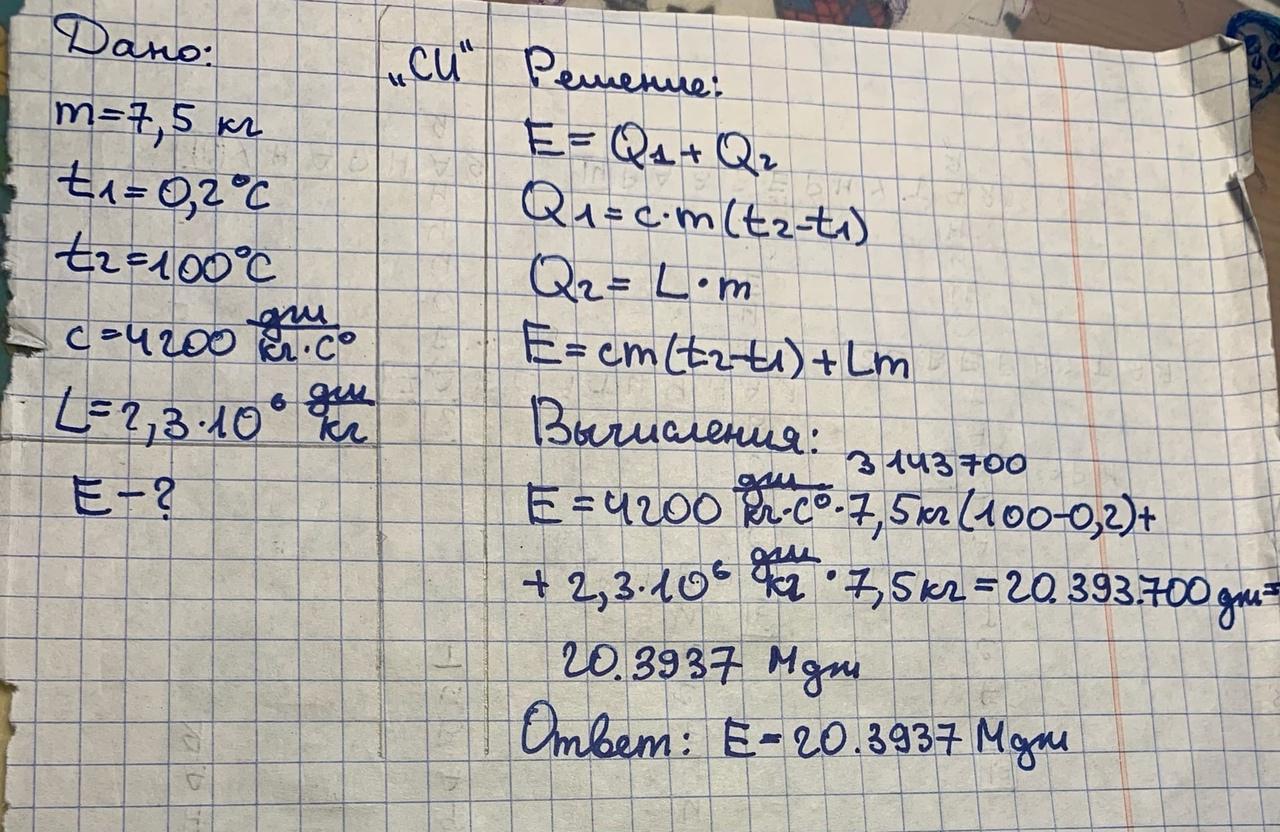 Дано:
m=7,5 кг
t1=0,2°C
t2=100°C
c=4200 дж/кг·C°
L=2,3·10⁶ дж/кг
E-?
„СИ“
Решение:
E=Q1+Q2
Q1=c·m(t2-t1)
Q2= L·m
E=cm(t2-t1)+Lm
Вычисления:
3143700
E=4200 дж/кг·C°·7,5кг(100-0,2)+
+ 2,3·10⁶ дж/кг · 7,5кг=20.393.700 дж=
20.3937 Мдж
Ответ: E-20.3937 Мдж